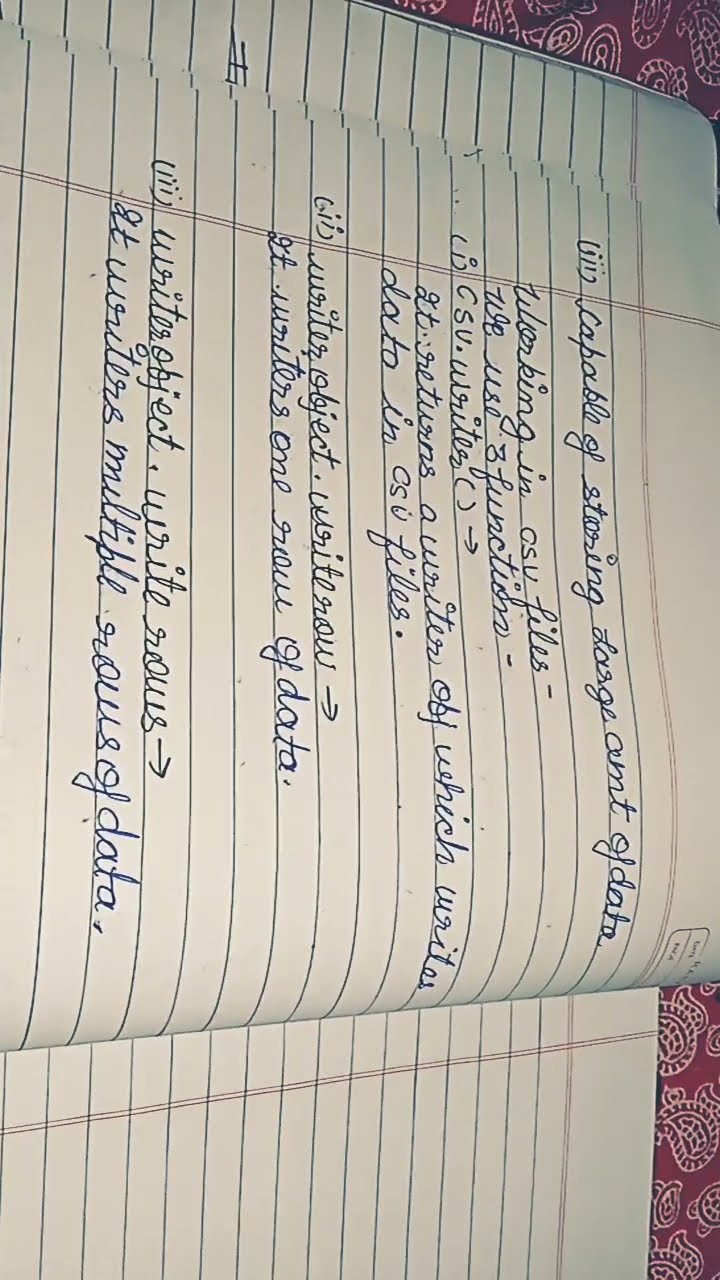 (iii) Capable of storing large amt of data
Working in csv files -
We use 3 function -
(i) csv.writer() →
It returns a writer obj which writes
data in csv files.
(ii) writer object. writerow →
It writers one row of data.
(iii) writer object. write rows →
It writers multiple rows of data.
#